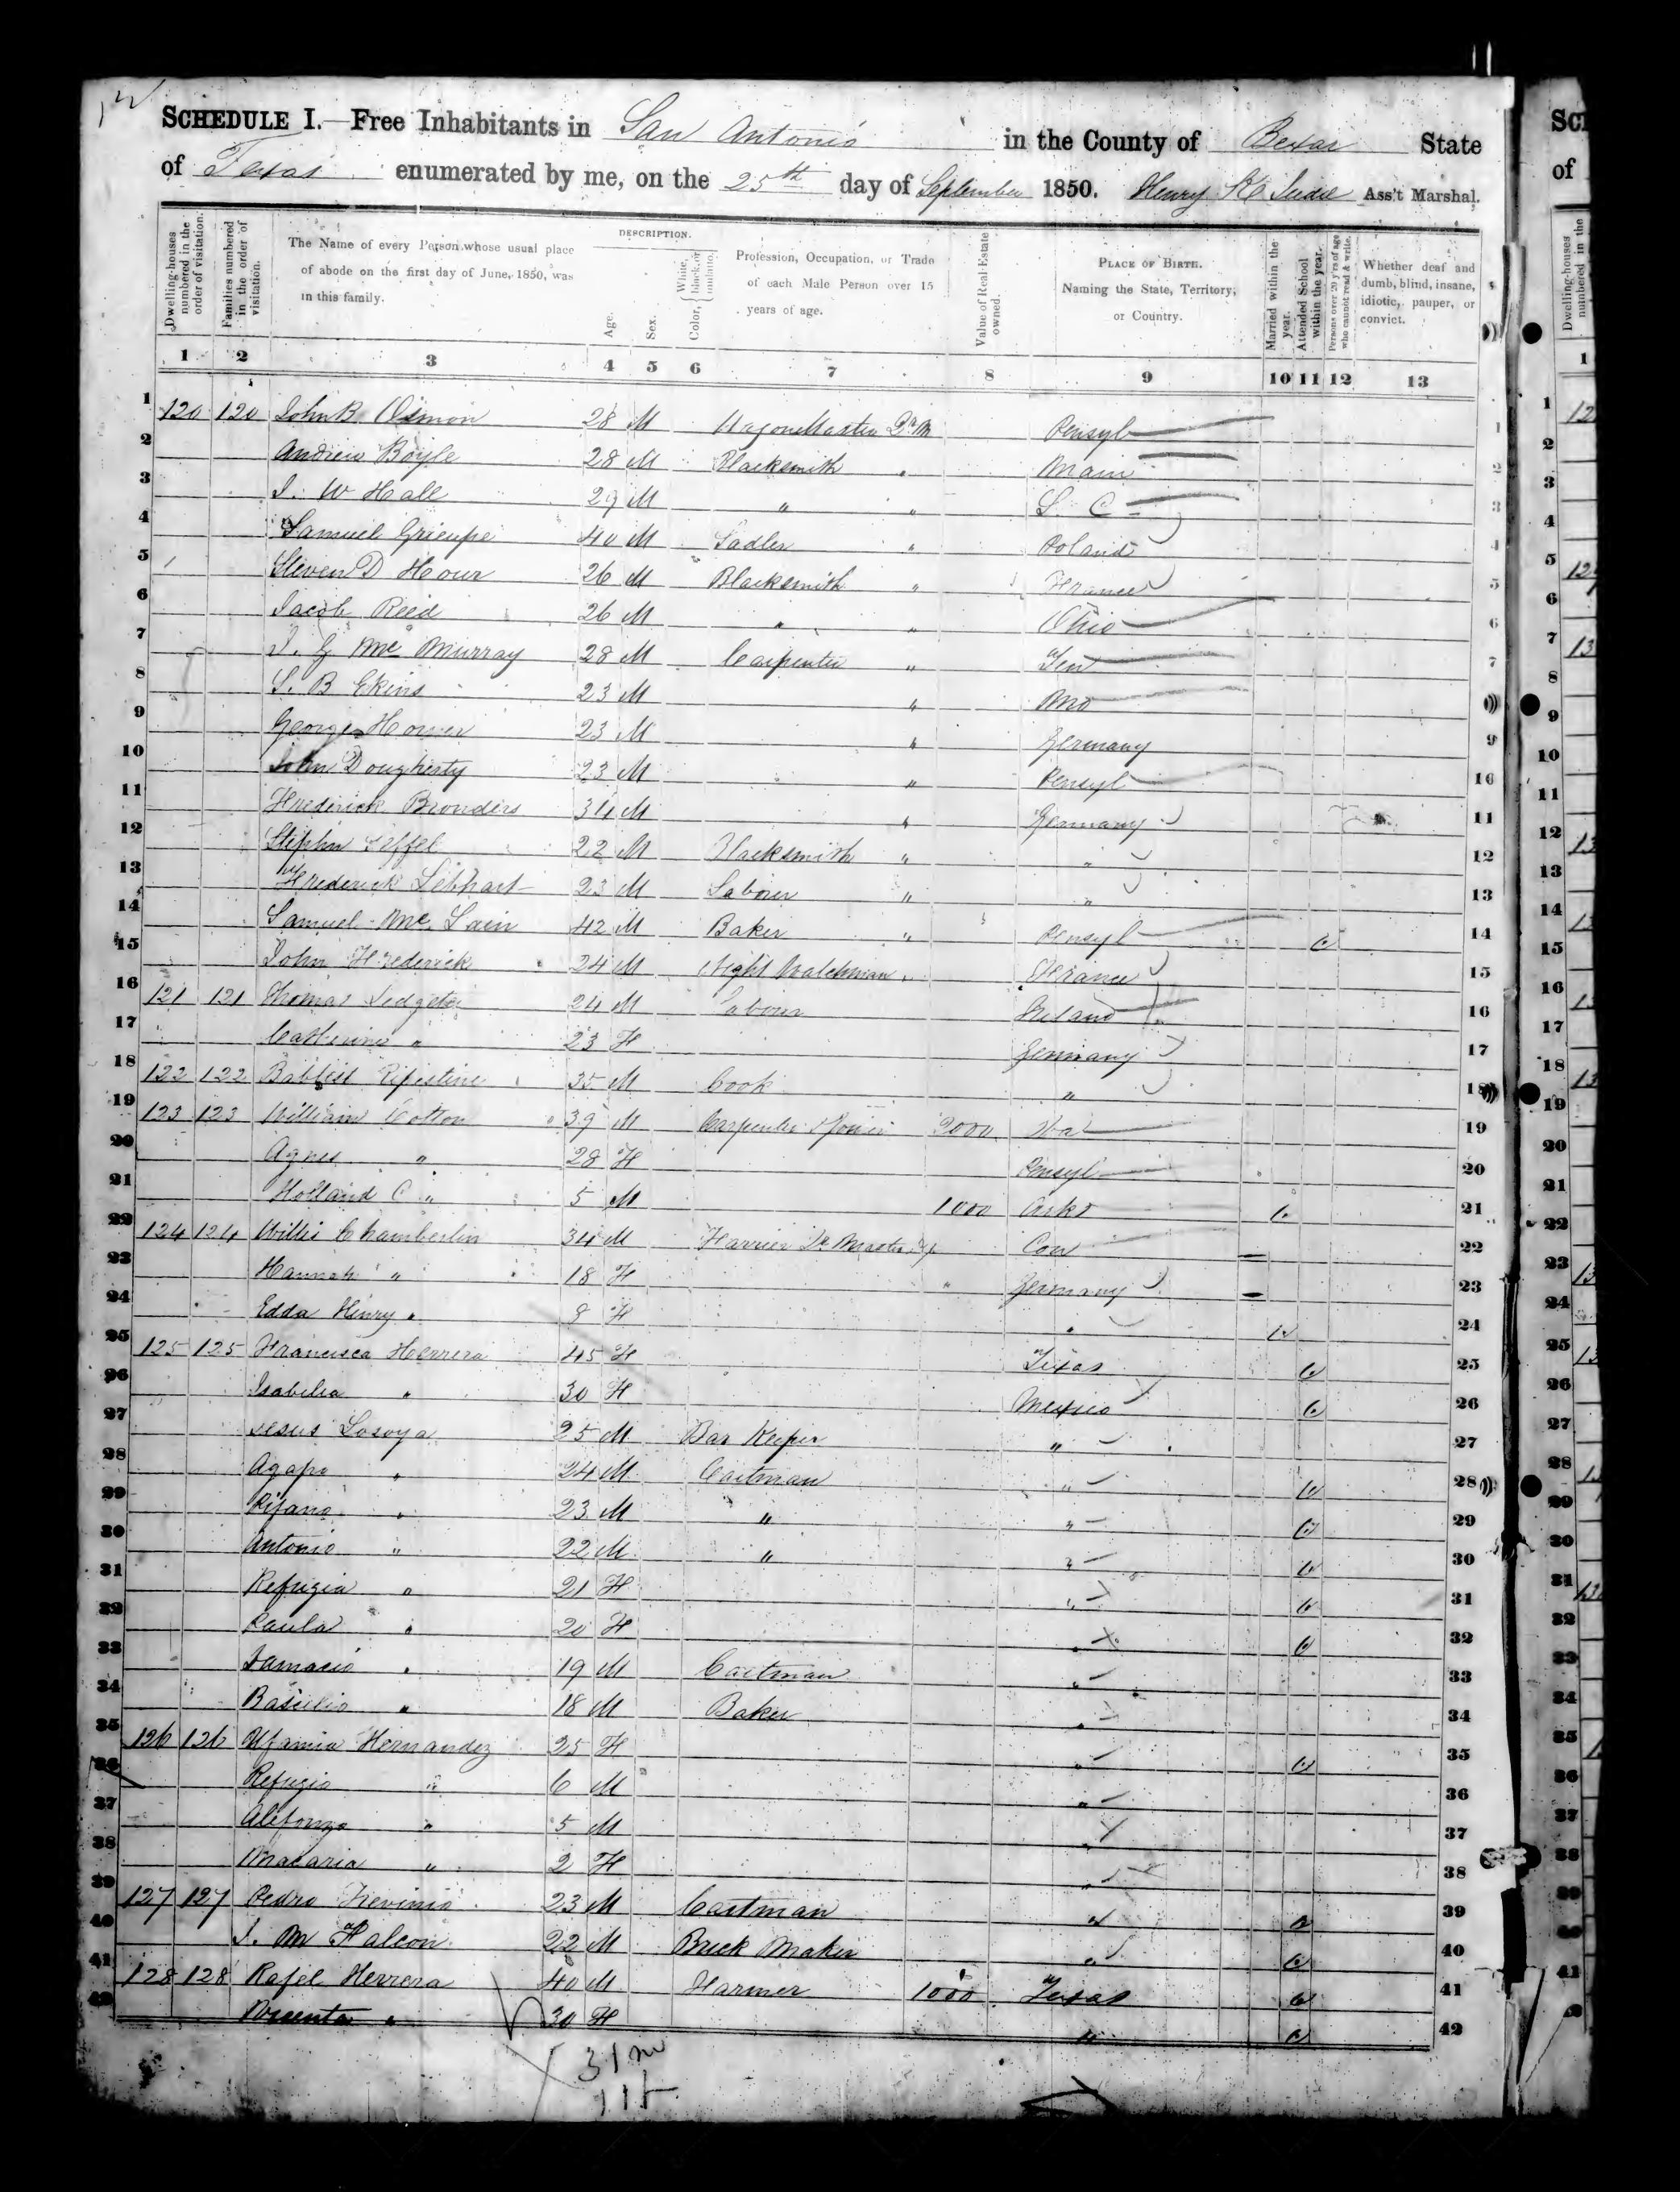 SCHEDULE I.—Free Inhabitants in San Antonio in the County of Bexar State
of Texas enumerated by me, on the 25th day of September 1850. Henry Ass't Marshal.
Dwelling-houses numbered in the order of visitation.
Families numbered in the order of visitation.
The Name of every Person whose usual place of abode on the first day of June, 1850, was in this family.
DESCRIPTION.
Age.
Sex.
Color, { White, black, or mulatto.
Profession, Occupation, or Trade of each Male Person over 15 years of age.
Value of Real Estate owned.
PLACE OF BIRTH. Naming the State, Territory, or Country.
Married within the year.
Attended School within the year.
Persons over 20 y'rs of age who cannot read & write.
Whether deaf and dumb, blind, insane, idiotic, pauper, or convict.
1 2 3 4 5 6 7 8 9 10 11 12 13
1 120 120 John B. Osmon 28 M Wagon Master Q. M Pensyl 1
2 Andrew Boyle 28 M Blacksmith " 2
3 J. W Hall 29 M " " S. C 3
4 Samuel 40 M Sadler " Poland 4
5 Steven D Hour 26 M Blacksmith " France 5
6 Jacob Reed 26 M " " Ohio 6
7 J. G Mc Murray 28 M Carpenter " Ten 7
8 S. B Ekins 23 M " Mo 8
9 George 23 M " Germany 9
10 John Dougherty 23 M " Pensyl 10
11 Frederick 34 M " Germany 11
12 Stephen 22 M Blacksmith " " 12
13 Frederick 23 M Labour " " 13
14 Samuel Mc Lain 42 M Baker " Pensyl 14
15 John Frederick 24 M Night Watchman " France 15
16 121 121 Thomas 24 M Labour Ireland 16
17 Catherine " 23 F Germany 17
18 122 122 35 M Cook " 18
19 123 123 William Cotton 39 M Carpenter & Joiner 19
20 Agnes " 28 F Pensyl 20
21 Holland C " 5 M 1000 Arks 21
22 124 124 Willis Chamberlin 34 M Con 22
23 Hannah " 18 F " Germany 23
24 Edda Henry " F " 24
25 125 125 Francisca Herrera 45 F Texas 25
26 Isabelia " 30 F Mexico 26
27 Jesus Losoya 25 M Bar Keeper " 27
28 Agapo " 24 M Cartman " 28
29 " 23 M " " 29
30 Antonio " 22 M " " 30
31 Refugia " 21 F " 31
32 Paula " 20 F " 32
33 Damacio " 19 M Cartman " 33
34 Basielio " 18 M Baker " 34
35 126 126 Ufamia Hernandez 25 F " 35
36 Refugio " 6 M " 36
37 Alefonzo " 5 M " 37
38 Macaria " 2 F " 38
39 127 127 Pedro Trevinio 23 M Cartman " 39
40 J. M Falcon 22 M Brick Maker " 40
41 128 128 Rafel Herrera 40 M Farmer 1000 Texas 41
42 " 30 F " 42
31 m
11 f